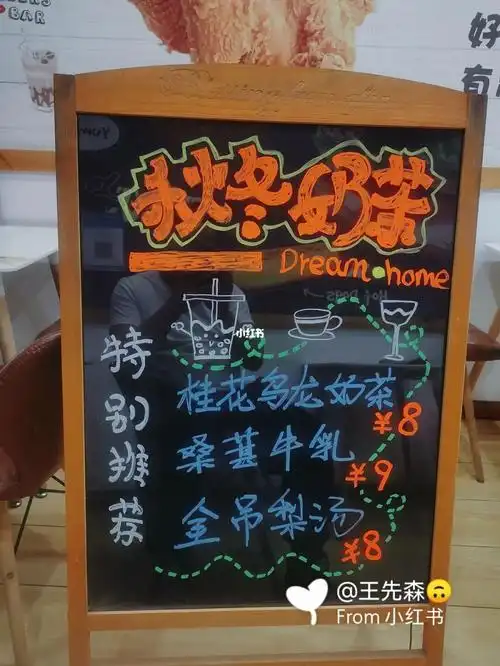 好
有
秋冬奶茶
Dream·home
小红书
特别推荐
桂花乌龙奶茶
¥8
桑葚牛乳
¥9
金吊梨汤
¥8
@王先森🙃
From 小红书